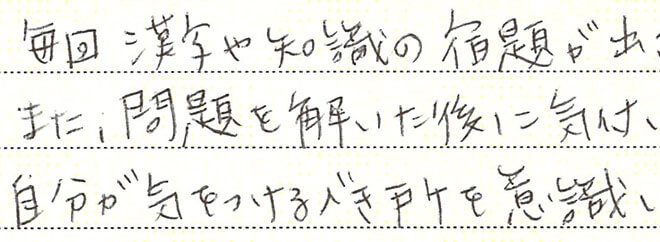 毎回漢字や知識の宿題が出
また、問題を解いた後に気付い
自分が気をつけるべき所を意識し